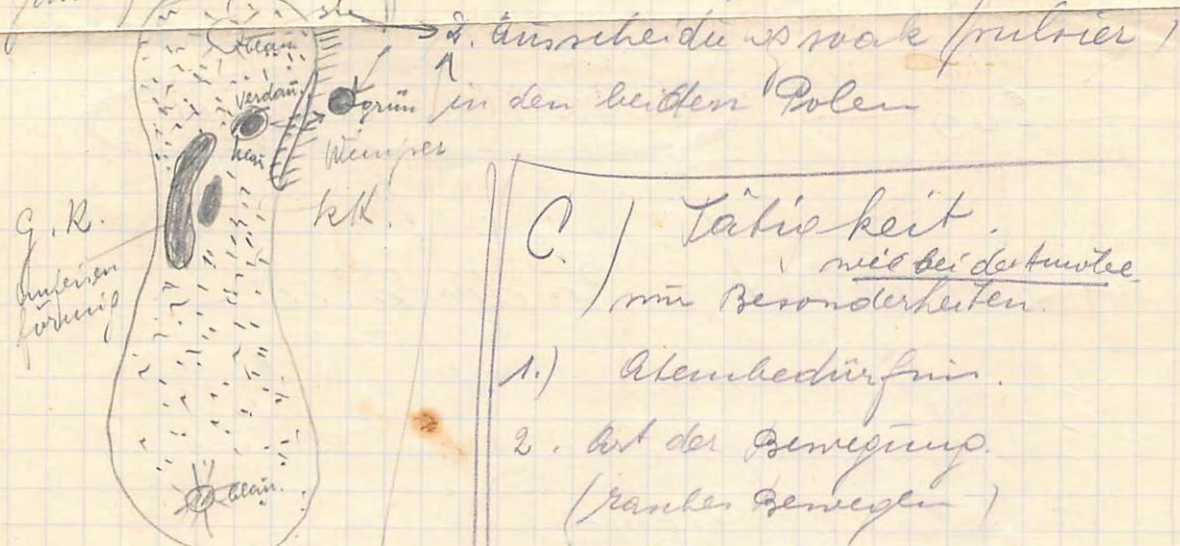 2. Ausscheidungsvak (pulsier)
in den beiden Polen
blau
Verdau.
grün
blau
Wimper
kK.
G. K.
förmig
blau.
C.) Tätigkeit.
wie bei der Amöbe
nur Besonderheiten.
1.) Atembedürfnis.
2. Art der Bewegung.
(rasches Bewegen)